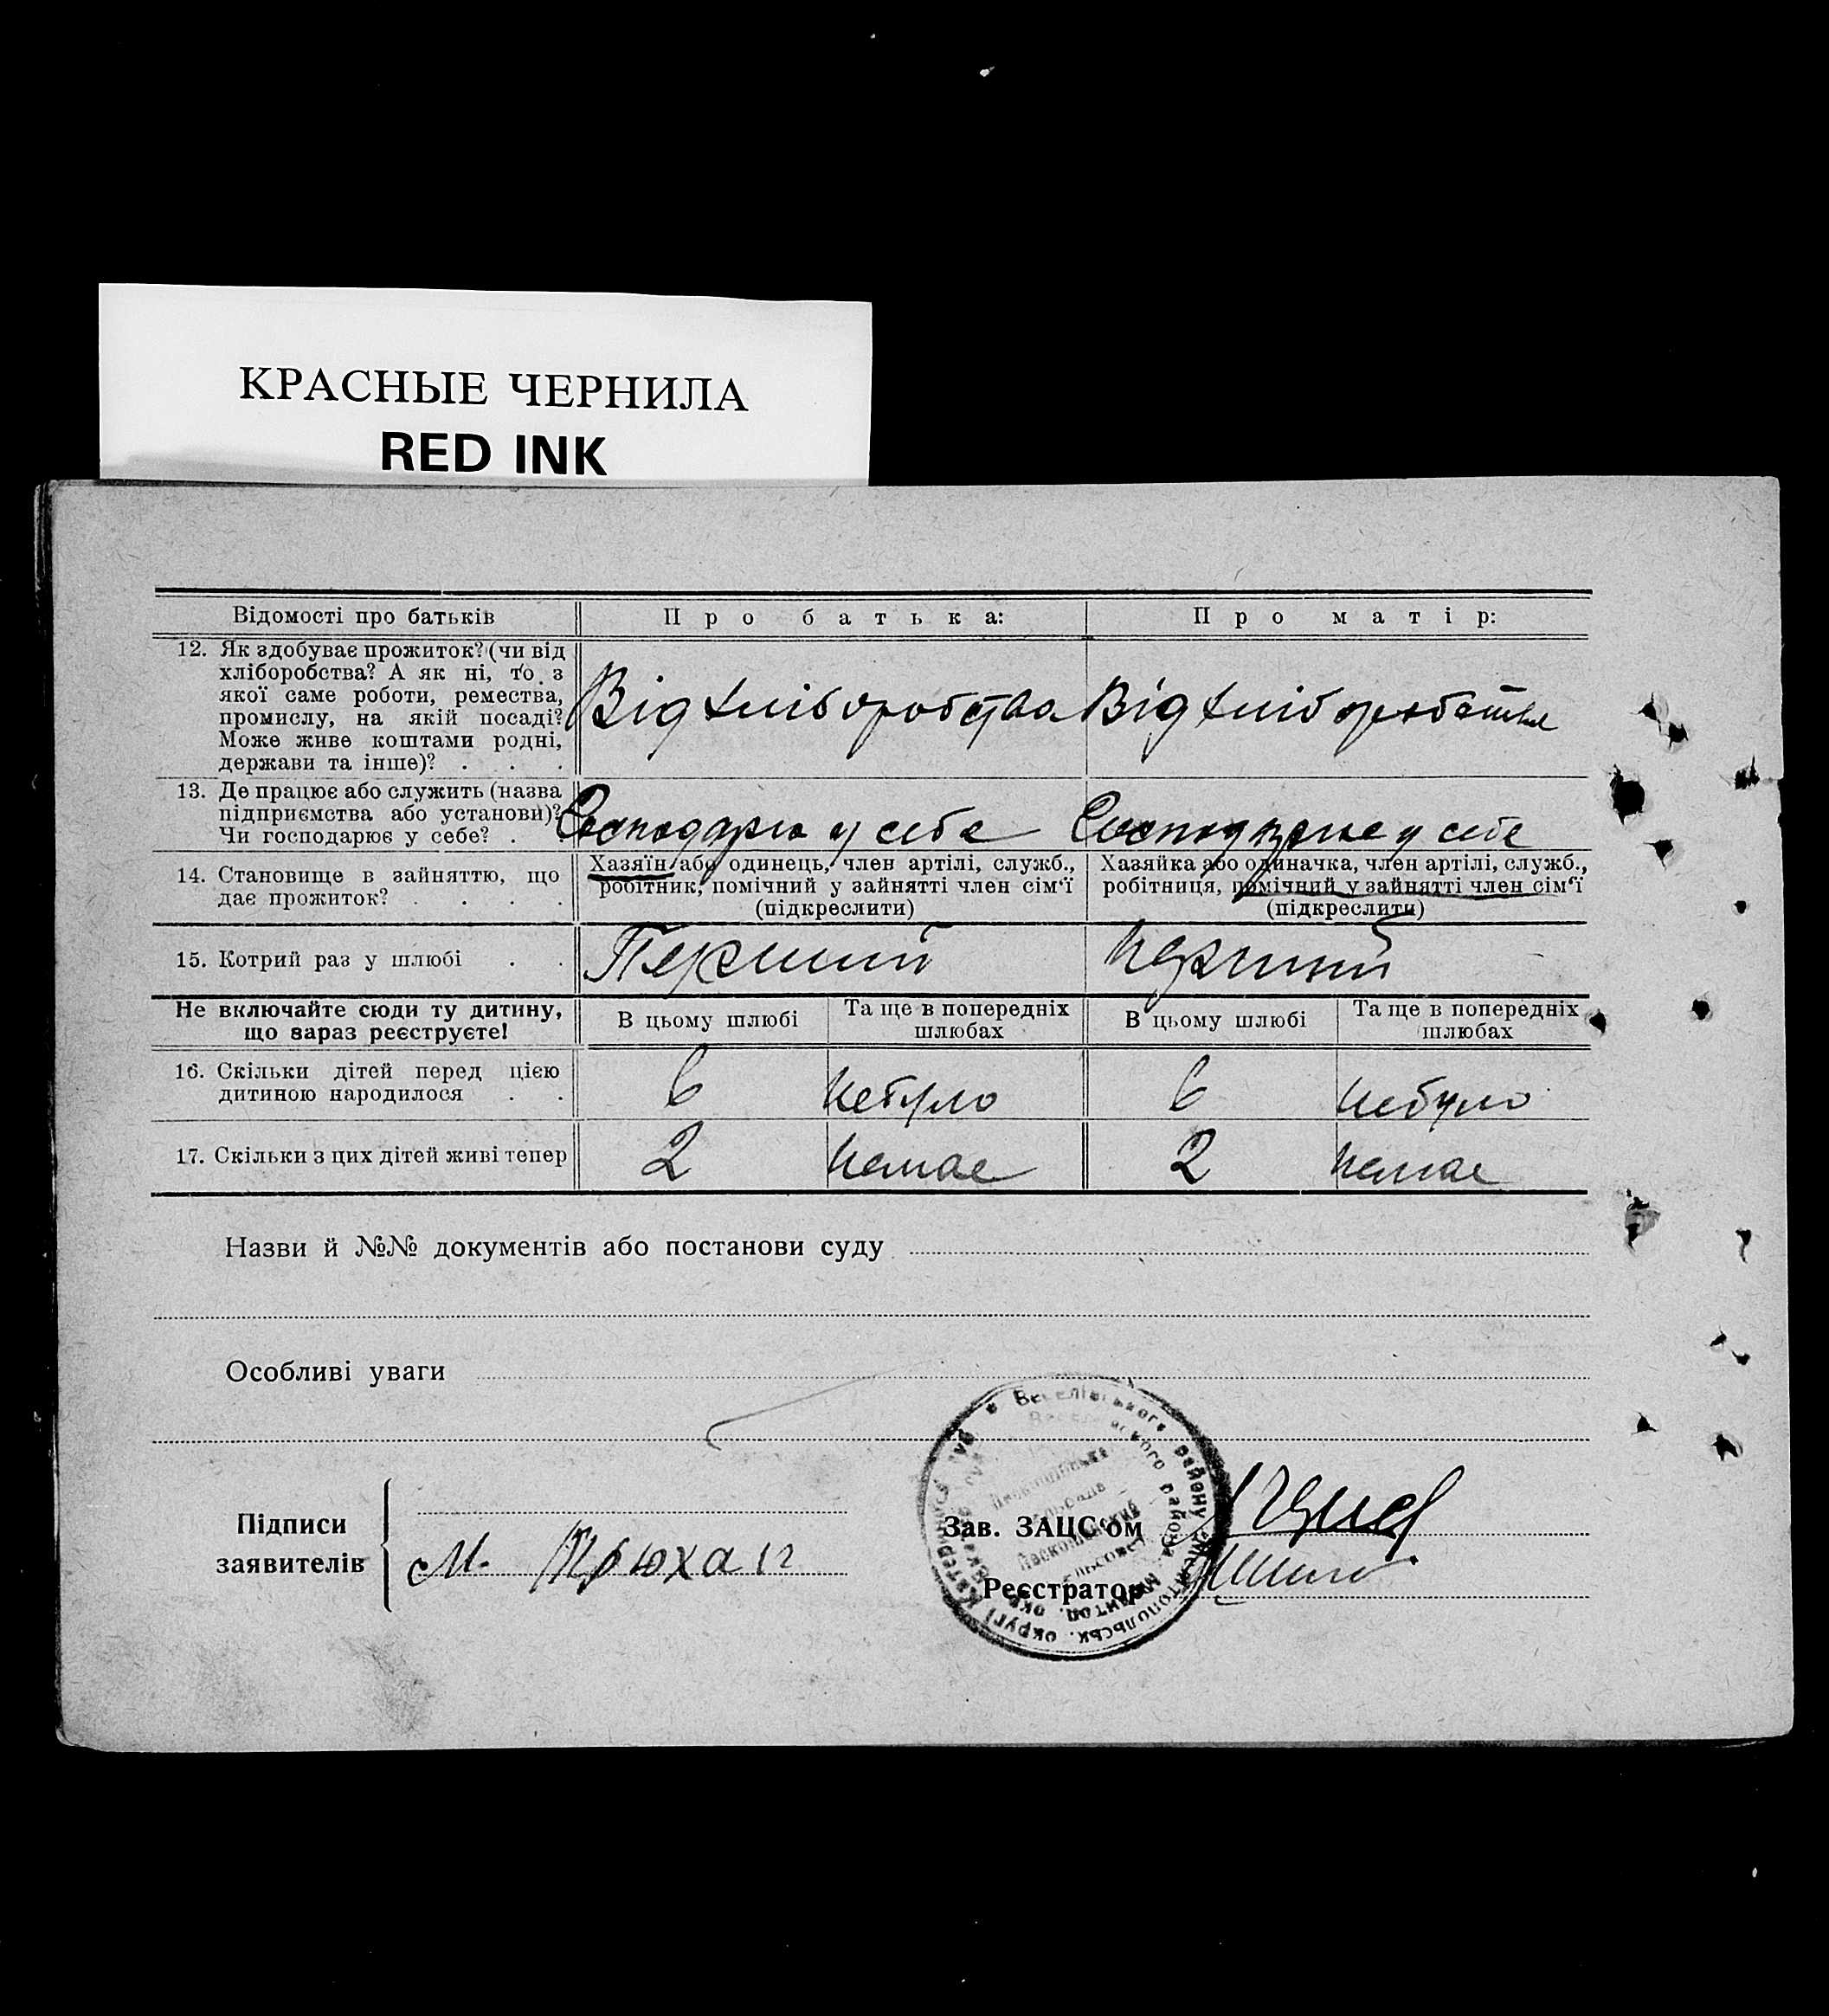 КРАСНЫЕ ЧЕРНИЛА
RED INK
Відомості про батьків
Про батька:
Про матір:
12. Як здобуває прожиток? (чи від
хліборобства? А як ні, то з
якої саме роботи, ремества,
промислу, на якій посаді?
Може живе коштами родні,
держави та інше)? . . .
Від хліборобства
Від хліборобства
13. Де працює або служить (назва
підприємства або установи)?
Чи господарює у себе? . .
Господарю у себе
Господарює у себе
14. Становище в зайняттю, що
дає прожиток? . . . .
Хазяїн або одинець, член артілі, служб.,
робітник, помічний у зайнятті член сім'ї
(підкреслити)
Хазяйка або одиначка, член артілі, служб.,
робітниця, помічний у зайнятті член сім'ї
(підкреслити)
15. Котрий раз у шлюбі . .
Перший
перший
Не включайте сюди ту дитину,
що зараз реєструєте!
В цьому шлюбі
Та ще в попередніх
шлюбах
В цьому шлюбі
Та ще в попередніх
шлюбах
16. Скільки дітей перед цією
дитиною народилося . .
6
небуло
6
небуло
17. Скільки з цих дітей живі тепер
2
немає
2
немає
Назви й №№ документів або постанови суду
Особливі уваги
Підписи
заявителів
М.
Зав. ЗАЦС'ом
Реєстратор
Веселівського району Мелітопольськ. округі